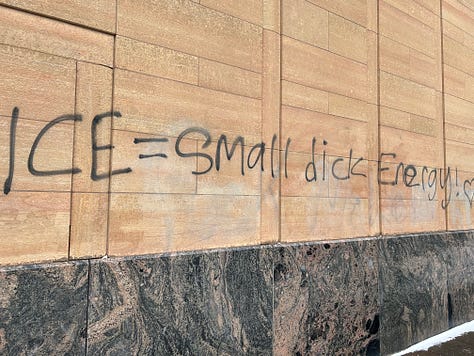 ICE = Small dick Energy! ♡